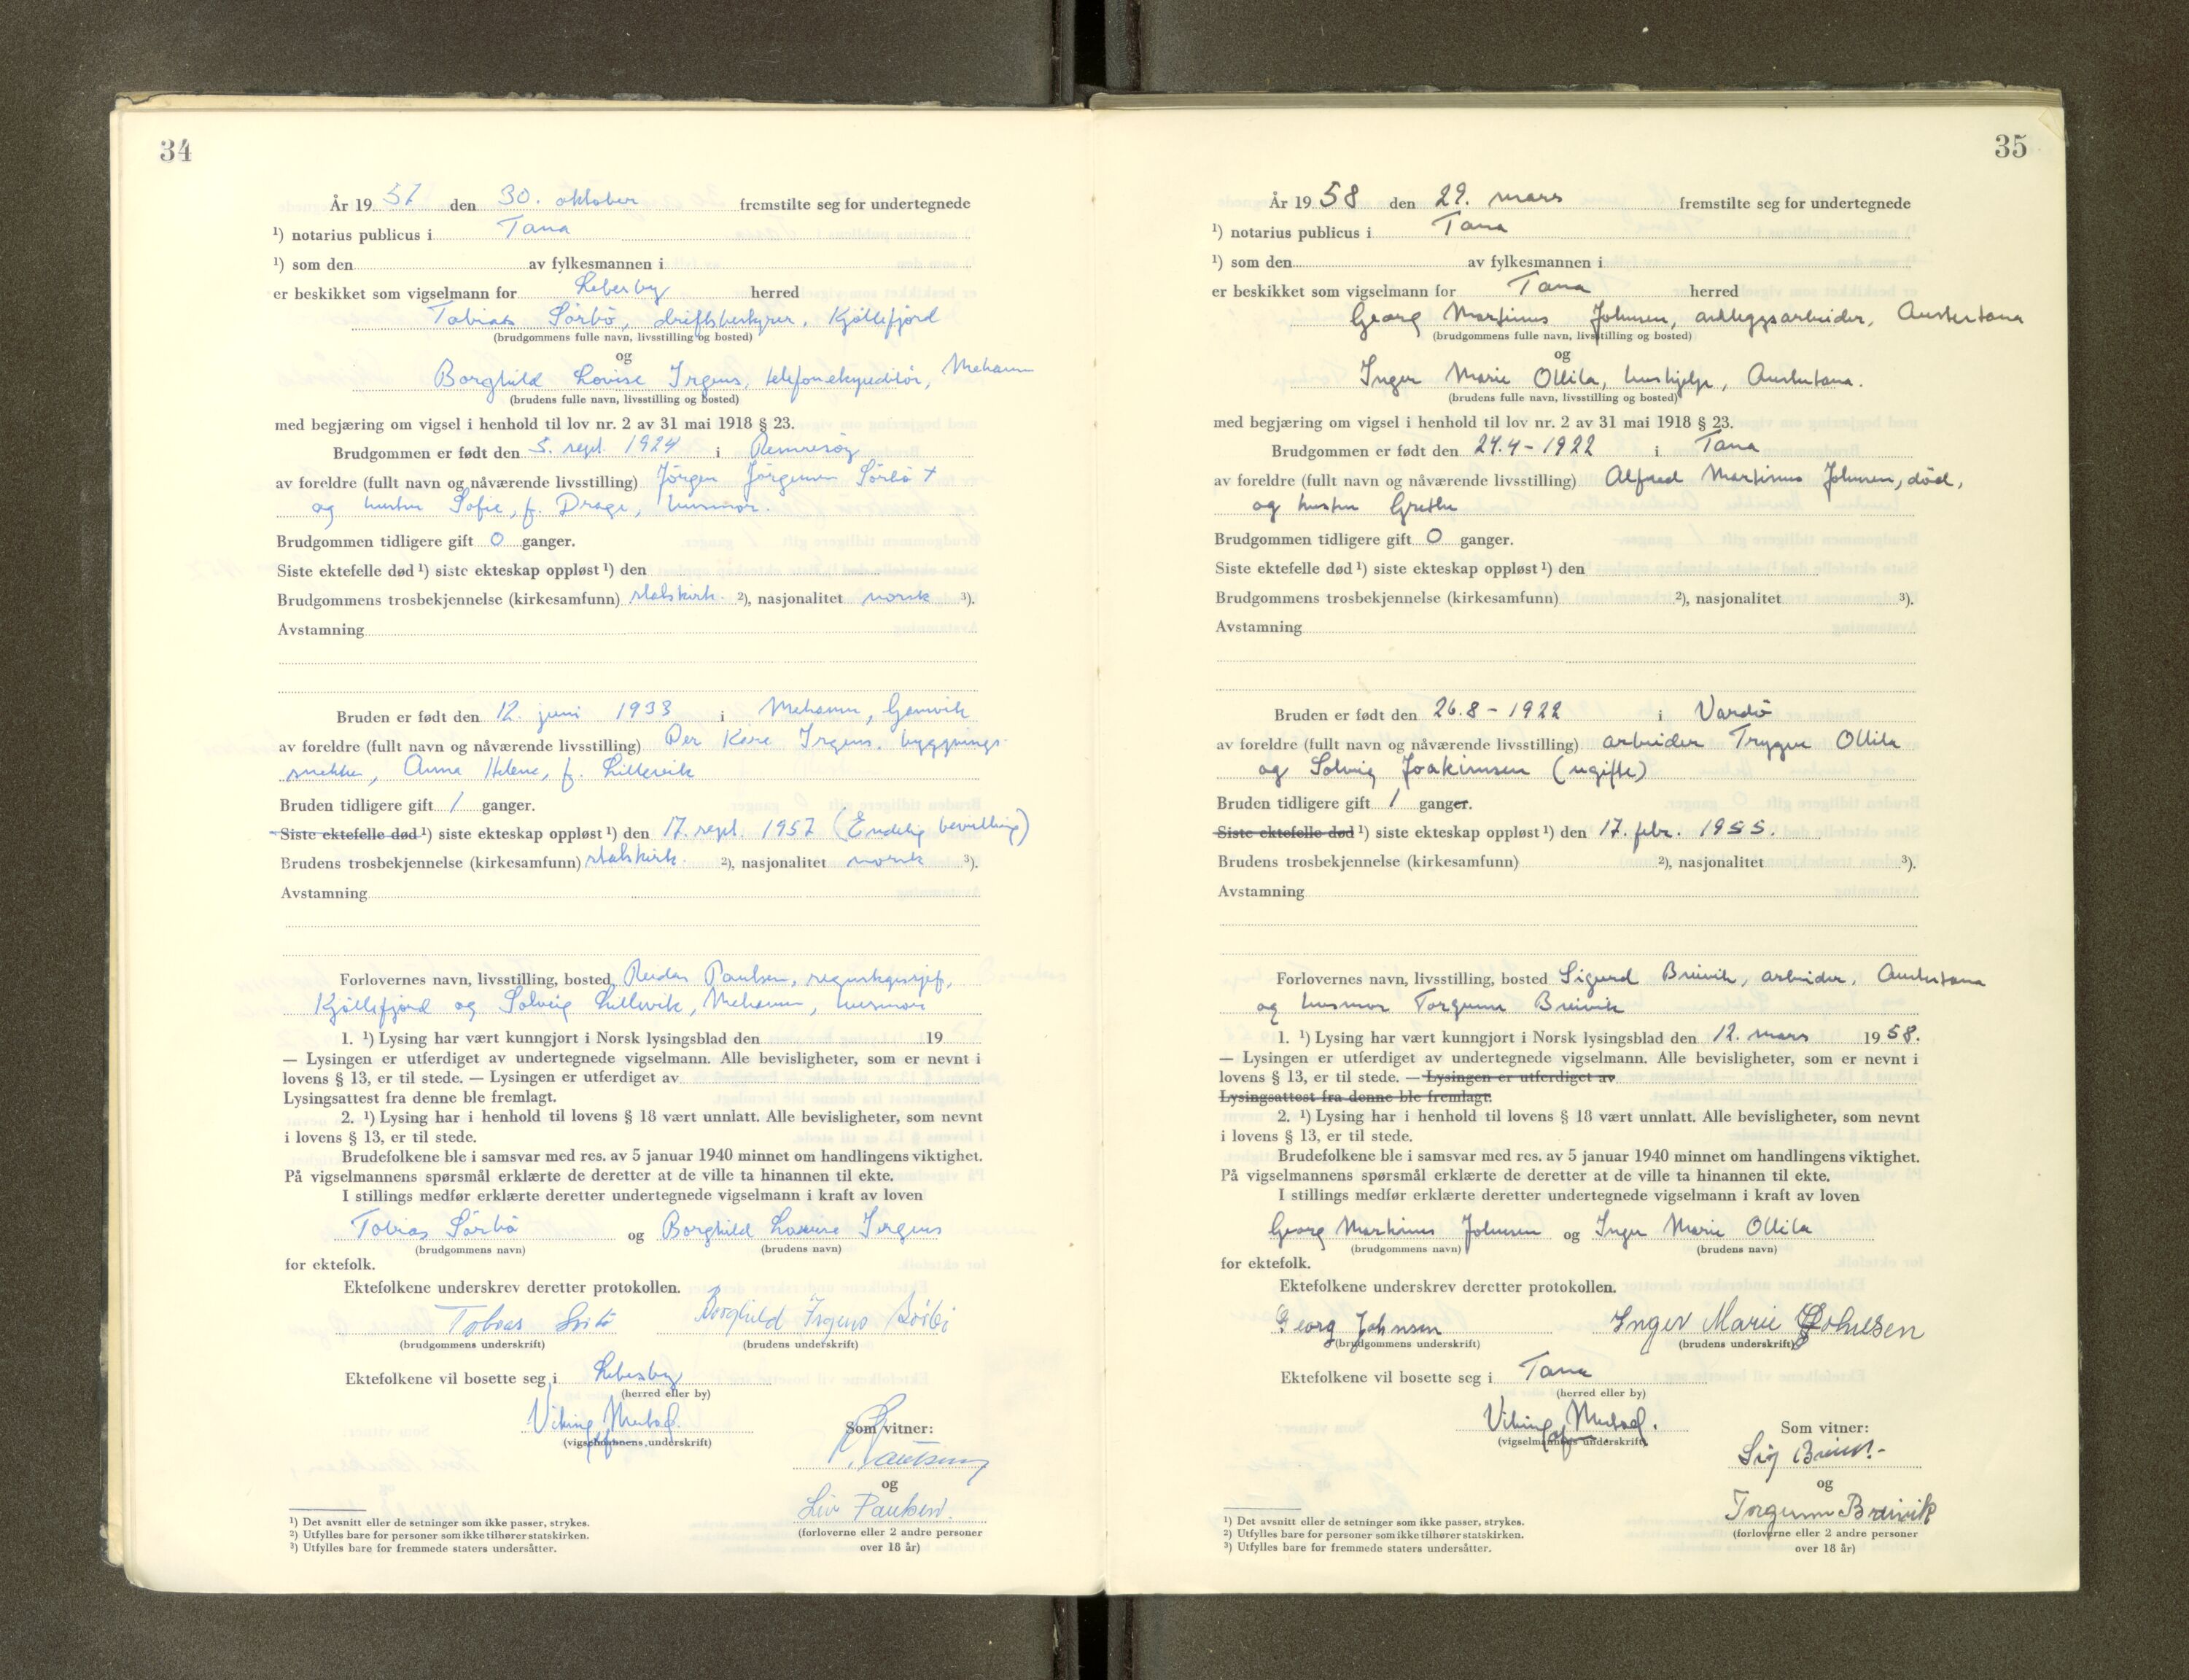 34
År 19 57 den 30. oktober fremstilte seg for undertegnede
¹) notarius publicus i Tana
¹) som den av fylkesmannen i
er beskikket som vigselmann for Lebesby herred
Tobias Sörbö, driftsbestyrer, Kjöllefjord
(brudgommens fulle navn, livsstilling og bosted)
og
Borghild Lovise Irgens, telefonekspeditör, Mehamn
(brudens fulle navn, livsstilling og bosted)
med begjæring om vigsel i henhold til lov nr. 2 av 31 mai 1918 § 23.
Brudgommen er født den 5. sept. 1924 i
av foreldre (fullt navn og nåværende livsstilling) Jörgen Jörgensen Sörbö +
og hustru Sofie, f. Drage, husmor.
Brudgommen tidligere gift 0 ganger.
Siste ektefelle død ¹) siste ekteskap oppløst ¹) den
Brudgommens trosbekjennelse (kirkesamfunn) statskirk. ²), nasjonalitet norsk ³).
Avstamning
Bruden er født den 12. juni 1933 i Mehamn, Gamvik
av foreldre (fullt navn og nåværende livsstilling) Per Kåre Irgens, byggnings-
snekker, Anna Helene, f. Lillevik
Bruden tidligere gift 1 ganger.
Siste ektefelle død ¹) siste ekteskap oppløst ¹) den 17. sept. 1957 (Endelig bevilling)
Brudens trosbekjennelse (kirkesamfunn) statskirk. ²), nasjonalitet norsk ³).
Avstamning
Forlovernes navn, livsstilling, bosted Reidar Paulsen, regnskapssjef,
Kjöllefjord og Solveig Lillevik, Mehamn, husmor
1. ¹) Lysing har vært kunngjort i Norsk lysingsblad den 19
— Lysingen er utferdiget av undertegnede vigselmann. Alle bevisligheter, som er nevnt i
lovens § 13, er til stede. — Lysingen er utferdiget av
Lysingsattest fra denne ble fremlagt.
2. ¹) Lysing har i henhold til lovens § 18 vært unnlatt. Alle bevisligheter, som nevnt
i lovens § 13, er til stede.
Brudefolkene ble i samsvar med res. av 5 januar 1940 minnet om handlingens viktighet.
På vigselmannens spørsmål erklærte de deretter at de ville ta hinannen til ekte.
I stillings medfør erklærte deretter undertegnede vigselmann i kraft av loven
Tobias Sörbö og Borghild Lovise Irgens
(brudgommens navn) (brudens navn)
for ektefolk.
Ektefolkene underskrev deretter protokollen.
Tobias Sörbö Borghild Irgens Sörbö
(brudgommens underskrift) (brudens underskrift)
Ektefolkene vil bosette seg i Lebesby
(herred eller by)
Viking
(vigselmannens underskrift)
Som vitner:
og
Liv Paulsen.
(forloverne eller 2 andre personer
over 18 år)
¹) Det avsnitt eller de setninger som ikke passer, strykes.
²) Utfylles bare for personer som ikke tilhører statskirken.
³) Utfylles bare for fremmede staters undersåtter.
35
År 19 58 den 29. mars fremstilte seg for undertegnede
¹) notarius publicus i Tana
¹) som den av fylkesmannen i
er beskikket som vigselmann for Tana herred
Georg Martinus Johnsen, anleggsarbeider, Austertana
(brudgommens fulle navn, livsstilling og bosted)
og
Inger Marie Ollila, hushjelp, Austertana.
(brudens fulle navn, livsstilling og bosted)
med begjæring om vigsel i henhold til lov nr. 2 av 31 mai 1918 § 23.
Brudgommen er født den 24.4-1922 i Tana
av foreldre (fullt navn og nåværende livsstilling) Alfred Martinus Johnsen, död,
og hustru Grethe
Brudgommen tidligere gift 0 ganger.
Siste ektefelle død ¹) siste ekteskap oppløst ¹) den
Brudgommens trosbekjennelse (kirkesamfunn) ²), nasjonalitet ³).
Avstamning
Bruden er født den 26.8-1922 i Vardö
av foreldre (fullt navn og nåværende livsstilling) arbeider Trygve Ollila
og Solveig Joakimsen (ugifte)
Bruden tidligere gift 1 ganger.
Siste ektefelle død ¹) siste ekteskap oppløst ¹) den 17. febr. 1955.
Brudens trosbekjennelse (kirkesamfunn) ²), nasjonalitet ³).
Avstamning
Forlovernes navn, livsstilling, bosted Sigurd Breivik, arbeider, Austertana
og husmor Torgunn Breivik
1. ¹) Lysing har vært kunngjort i Norsk lysingsblad den 12. mars 19 58.
— Lysingen er utferdiget av undertegnede vigselmann. Alle bevisligheter, som er nevnt i
lovens § 13, er til stede. — Lysingen er utferdiget av
Lysingsattest fra denne ble fremlagt.
2. ¹) Lysing har i henhold til lovens § 18 vært unnlatt. Alle bevisligheter, som nevnt
i lovens § 13, er til stede.
Brudefolkene ble i samsvar med res. av 5 januar 1940 minnet om handlingens viktighet.
På vigselmannens spørsmål erklærte de deretter at de ville ta hinannen til ekte.
I stillings medfør erklærte deretter undertegnede vigselmann i kraft av loven
Georg Martinus Johnsen og Inger Marie Ollila
(brudgommens navn) (brudens navn)
for ektefolk.
Ektefolkene underskrev deretter protokollen.
Georg Johnsen Inger Marie Johnsen
(brudgommens underskrift) (brudens underskrift)
Ektefolkene vil bosette seg i Tana
(herred eller by)
Viking
(vigselmannens underskrift)
Som vitner:
Sig Breivik
og
Torgunn Breivik
(forloverne eller 2 andre personer
over 18 år)
¹) Det avsnitt eller de setninger som ikke passer, strykes.
²) Utfylles bare for personer som ikke tilhører statskirken.
³) Utfylles bare for fremmede staters undersåtter.